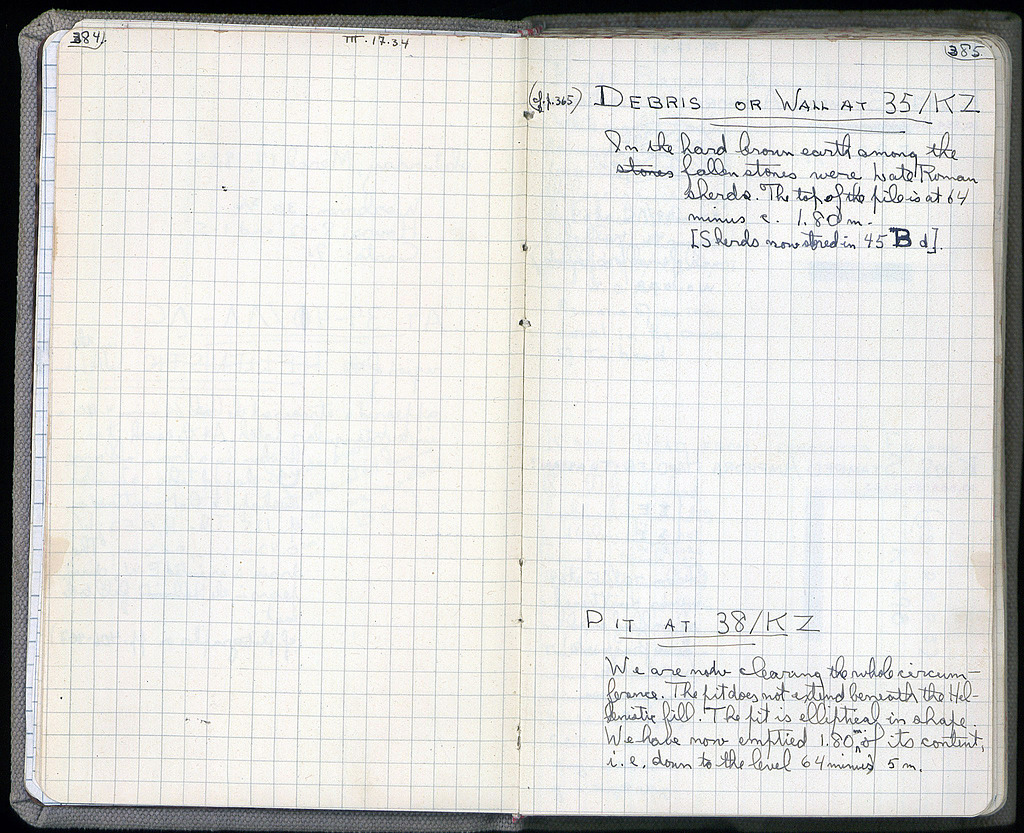 384.
III.17.34
385
(cf. p. 365) DEBRIS OR WALL AT 35/KZ
In the hard brown earth among the
stones fallen stones were Late Roman
sherds. The top of the pile is at 64
minus c. 1.80 m.
[Sherds now stored in 45 B d].
PIT AT 38/KZ
We are now clearing the whole circum-
ference. The pit does not extend beneath the Hel-
lenistic fill. The pit is elliptical in shape.
We have now emptied 1.80 m of its content,
i.e. down to the level 64 minus 5 m.